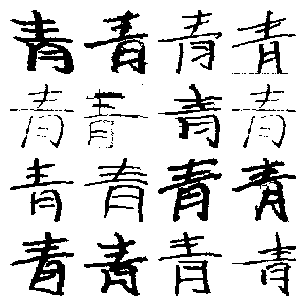 青青青青
青青青青
青青青青
青青青青